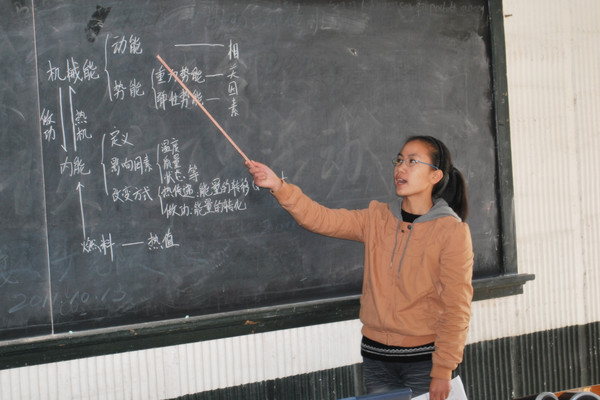 机械能
动能 —— 相关因素
势能
重力势能 —
弹性势能 —
做功
热机
内能
定义
影响因素
温度
质量
状态.等
改变方式
热传递.能量的转移
做功.能量的转化
燃料 — 热值
2011.10.13